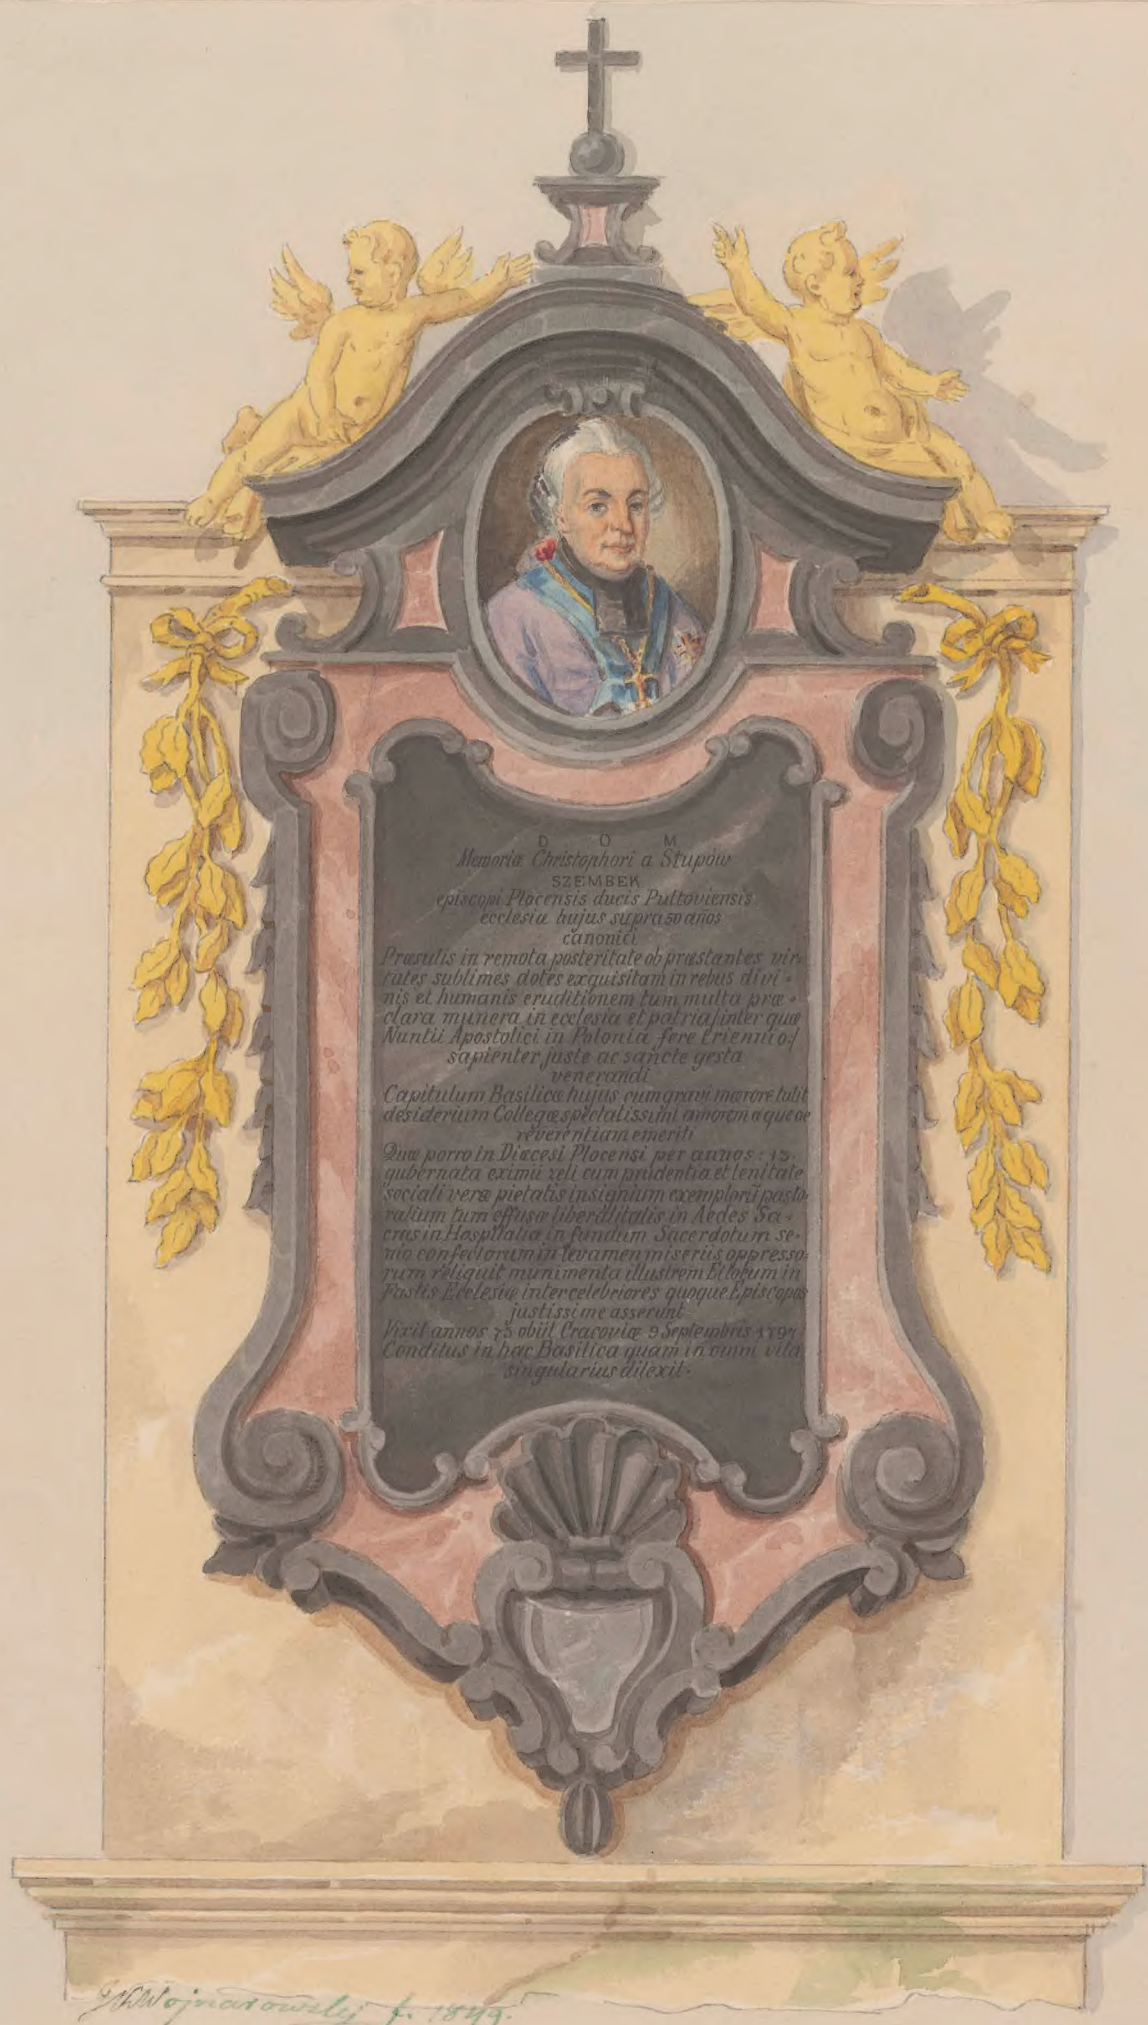 D O M
Memoriæ Christophori a Stupów
SZEMBEK
episcopi Plocensis ducis Pultoviensis
ecclesiæ hujus supra 50 años
canonici
Præsulis in remota posteritate ob præstantes vir-
tutes sublimes dotes exquisitam in rebus divi-
nis et humanis eruditionem tum multa præ-
clara munera in ecclesia et patria /inter quæ
Nuntii Apostolici in Polonia fere triennio:/
sapienter juste ac sancte gesta
venerandi
Capitulum Basilicæ hujus cum gravi mœrore tulit
desiderium Collegæ spectatissimi amorem
reverentiam emeriti
Quæ porro in Diæcesi Plocensi per annos: 13.
gubernata eximii zeli cum prudentia et lenitate
sociati veræ pietatis insignium exemplorū pasto-
ralium tum effusæ liberalitatis in Aedes Sa-
cras in Hospitalia in fundum Sacerdotum se-
nio confectorum in levamen miseriis oppresso-
rum reliquit munimenta illustrem Et in
Fastis Ecclesiæ inter celebriores quoque Episcopos
justissime asserunt
Vixit annos 75 obiit Cracoviæ 9 Septembris 1797
Conditus in hac Basilica quam in omni vita
singularius dilexit.
Wojnarowski f. 1849.